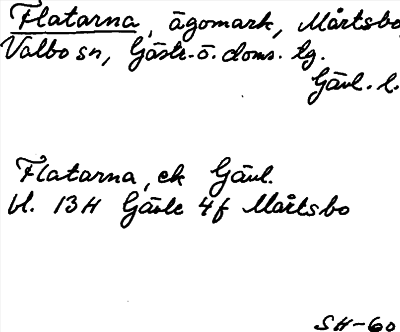 Flatarna, ägomark, Mårtsbo,
Valbo sn, Gästr. ö. doms. tg.
Gävl. l.
Flatarna, ek Gävl.
bl. 13H Gävle 4f Mårtsbo
SH-60